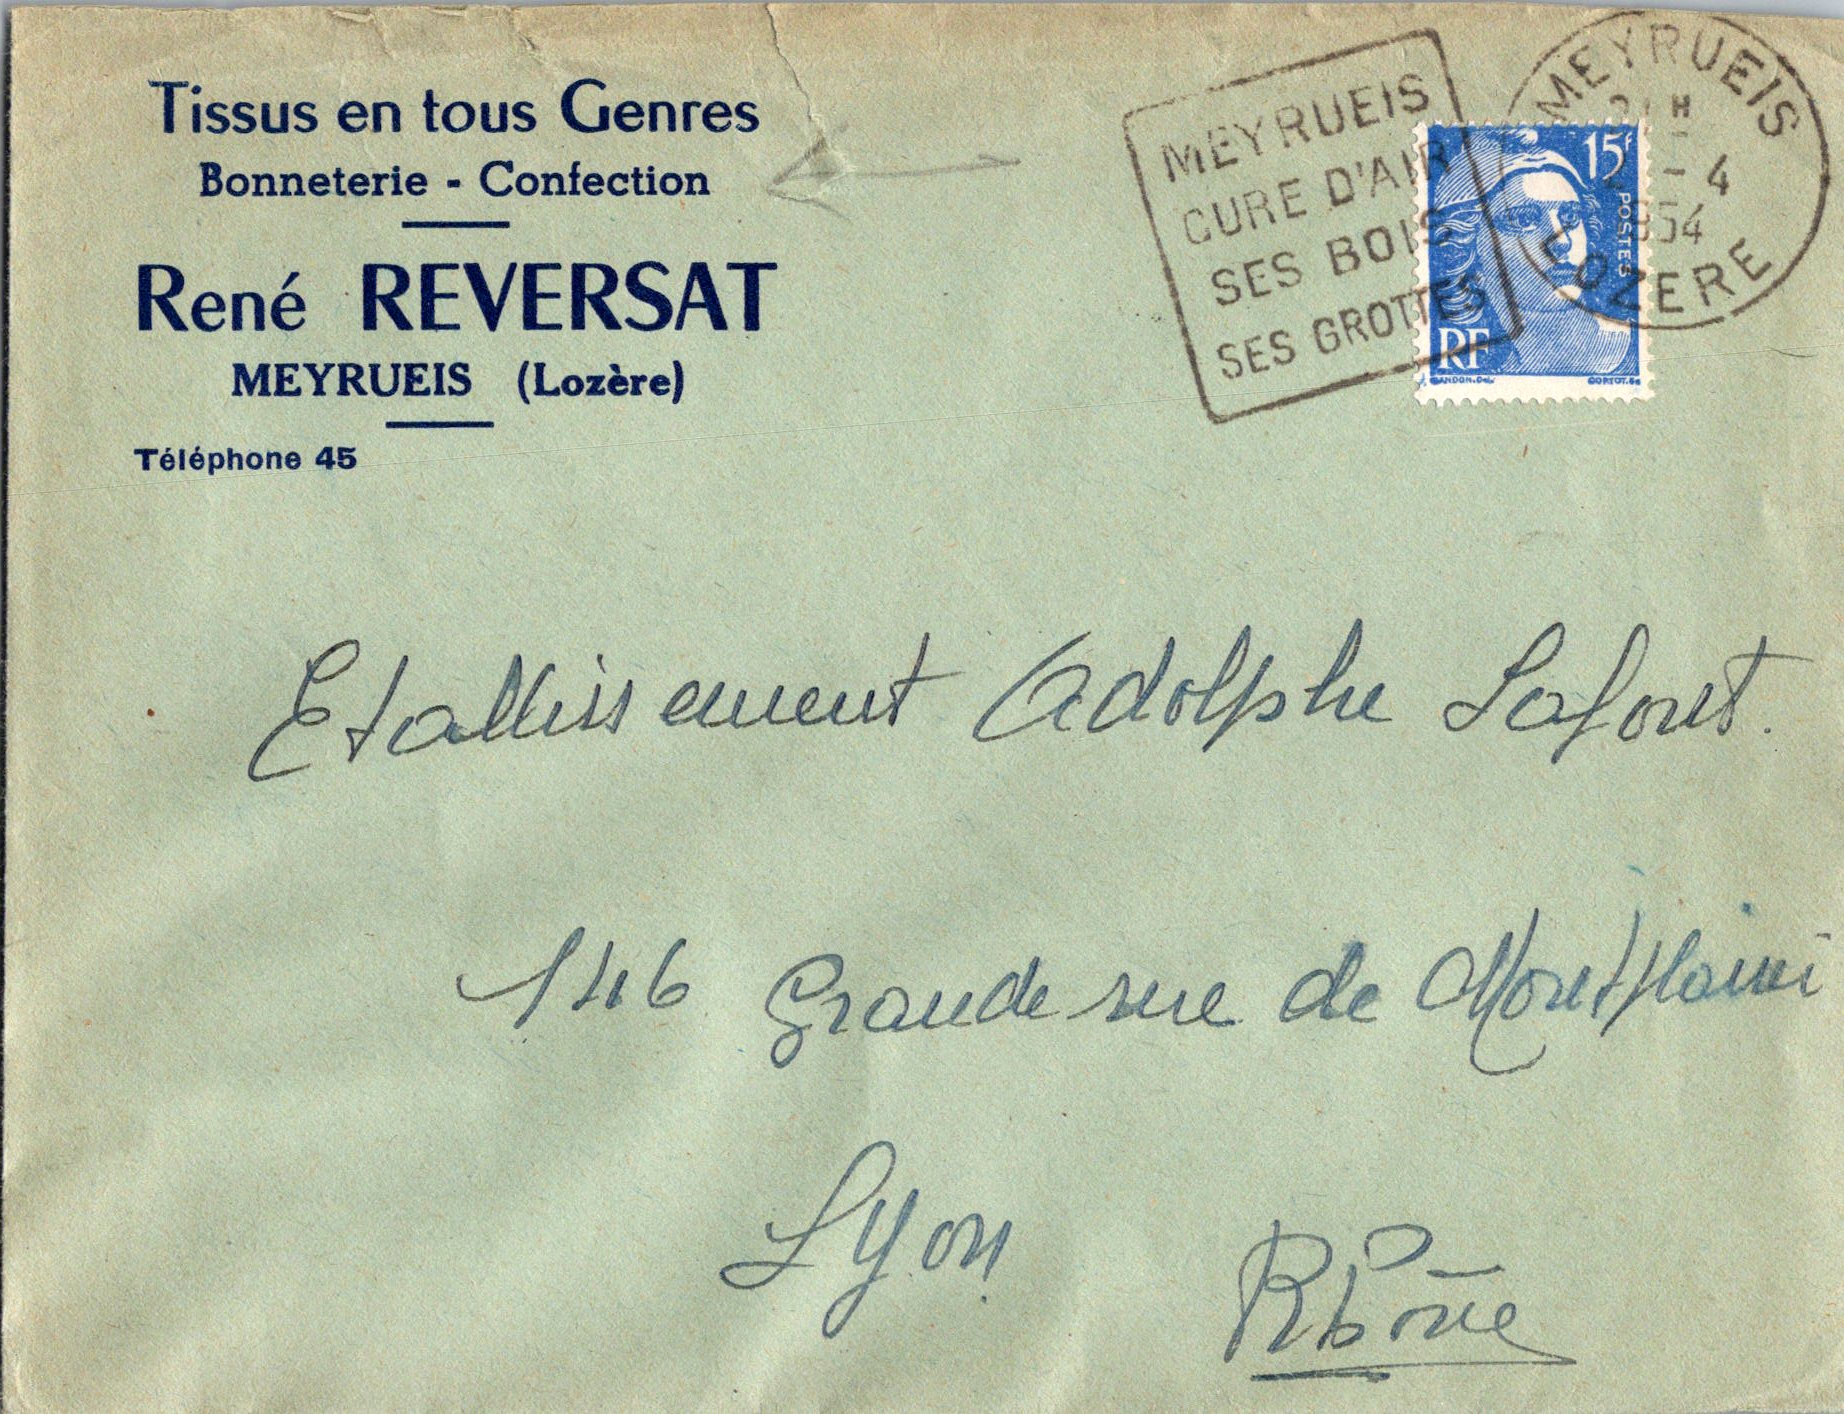 Tissus en tous Genres
Bonneterie - Confection
René REVERSAT
MEYRUEIS (Lozère)
Téléphone 45
MEYRUEIS
CURE D'AIR
SES BOIS
SES GROTTES
MEYRUEIS
H
- 4
1954
LOZERE
15F
POSTES
RF
GANDON. Del.
CORTOT. Sc
Etablissement Adolphe Lafont.
146 Grande rue de Montplaisi
Lyon
Rhône